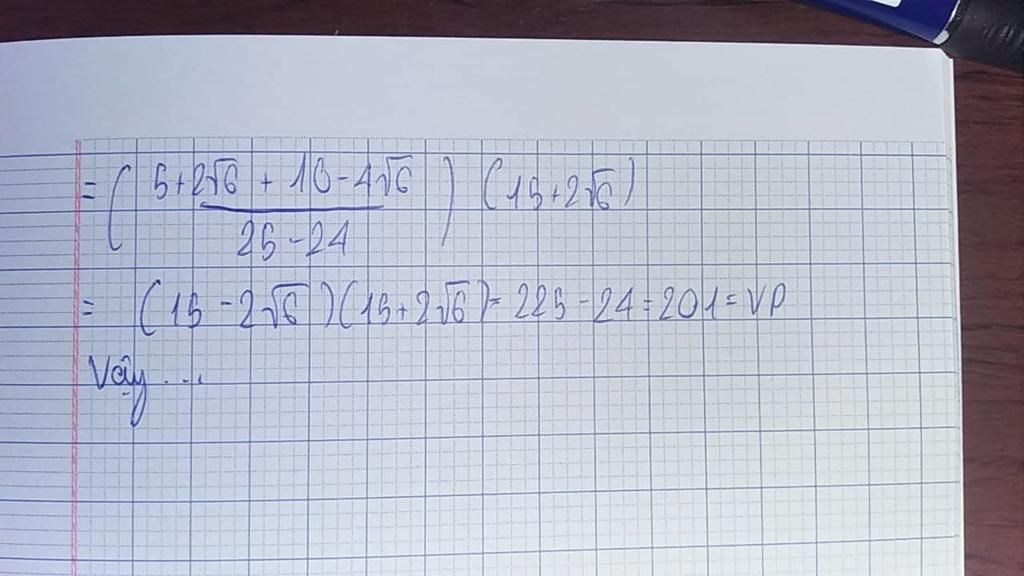 = ( (5+2√6 + 10-4√6) / (25-24) ) (15+2√6)
= (15-2√6)(15+2√6) = 225-24 = 201 = VP
Vậy ...